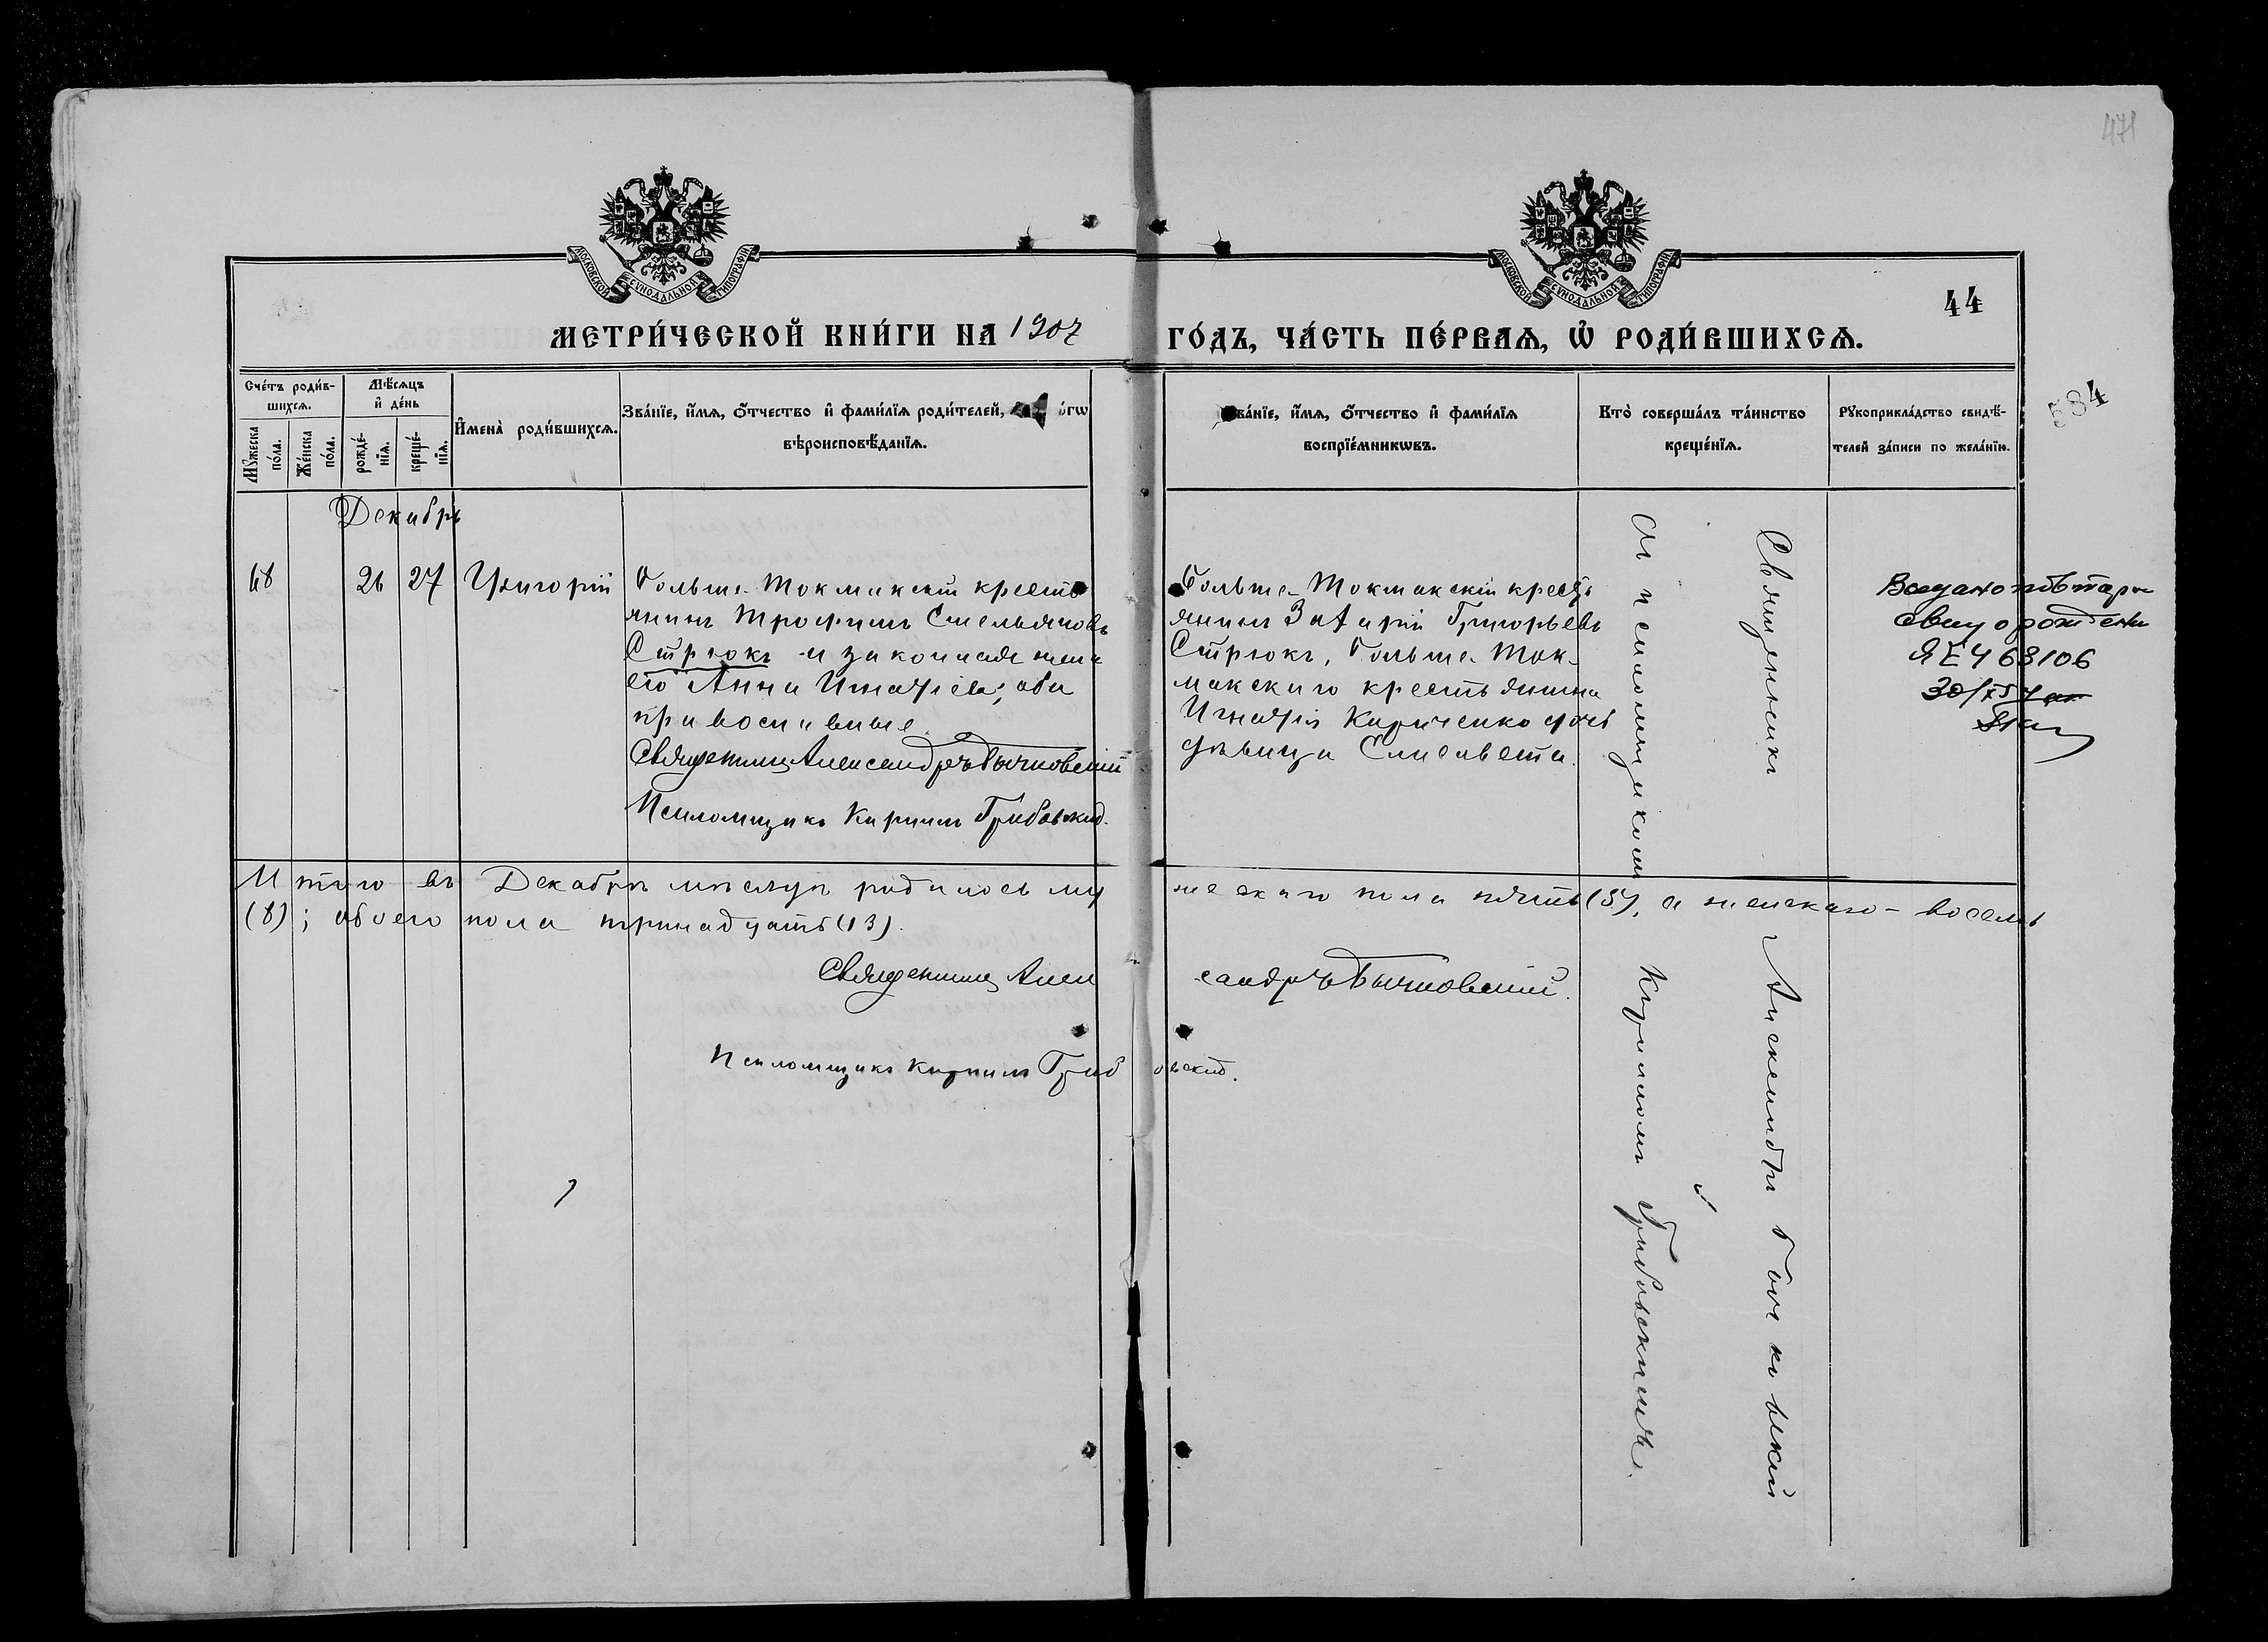 471
МОСКОВСКОЙ СѴНОДАЛЬНОЙ ТИПОГРАФІИ
МОСКОВСКОЙ СѴНОДАЛЬНОЙ ТИПОГРАФІИ
44
МЕТРИ́ЧЕСКОЙ КНИ́ГИ НА 1907 ГО́ДЪ, ЧА́СТЬ ПЕ́РВАѦ, Ѡ҆ РОДИ́ВШИХСѦ.
584
Сче́тъ роди́в-
шихсѧ.
Мѣ́сѧцъ
и҆ де́нь
Мꙋ́жеска
по́ла.
Же́нска
по́ла.
рожде́-
нїѧ.
креще́-
нїѧ.
И҆мена̀ роди́вшихсѧ.
Зва́нїе, и҆́мѧ, ѻ҆́тчество и҆ фами́лїѧ роди́телей,
вѣроисповѣ́данїѧ.
Зва́нїе, и҆́мѧ, ѻ҆́тчество и҆ фами́лїѧ
воспрїе́мникѡвъ.
Кто̀ соверша́лъ та́инство
креще́нїѧ.
Рꙋкоприкла́дство свидѣ́-
телей за́писи по жела́нїю.
Декабрь
68 26 27 Григорій
Больше-Токмакскій кресть
янинъ Трофимъ Емельяновъ
Стрюкъ и законная жена
его Анна Игнатіева; оба
православные.
Священникъ Александръ Бычковскій
Псаломщикъ Кириллъ Грибовскій.
Больше-Токмакскій кресть
янинъ Захарій Григорьевъ
Стрюкъ, Больше-Ток-
макскаго крестьянина
Игнатія Кириченко дочь
дѣвица Елисавета.
Священникъ Александръ Бычковскій
съ псаломщикомъ Кирилломъ Грибовскимъ.
Выдано повторн
свид о рождени
ЯЕ 468106
Итого въ Декабрѣ мѣсяцѣ родилось мужескаго пола пять (5), а женскаго - восемь
(8); обоего пола тринадцать (13).
Священникъ Александръ Бычковскій.
Псаломщикъ Кириллъ Грибовскій.